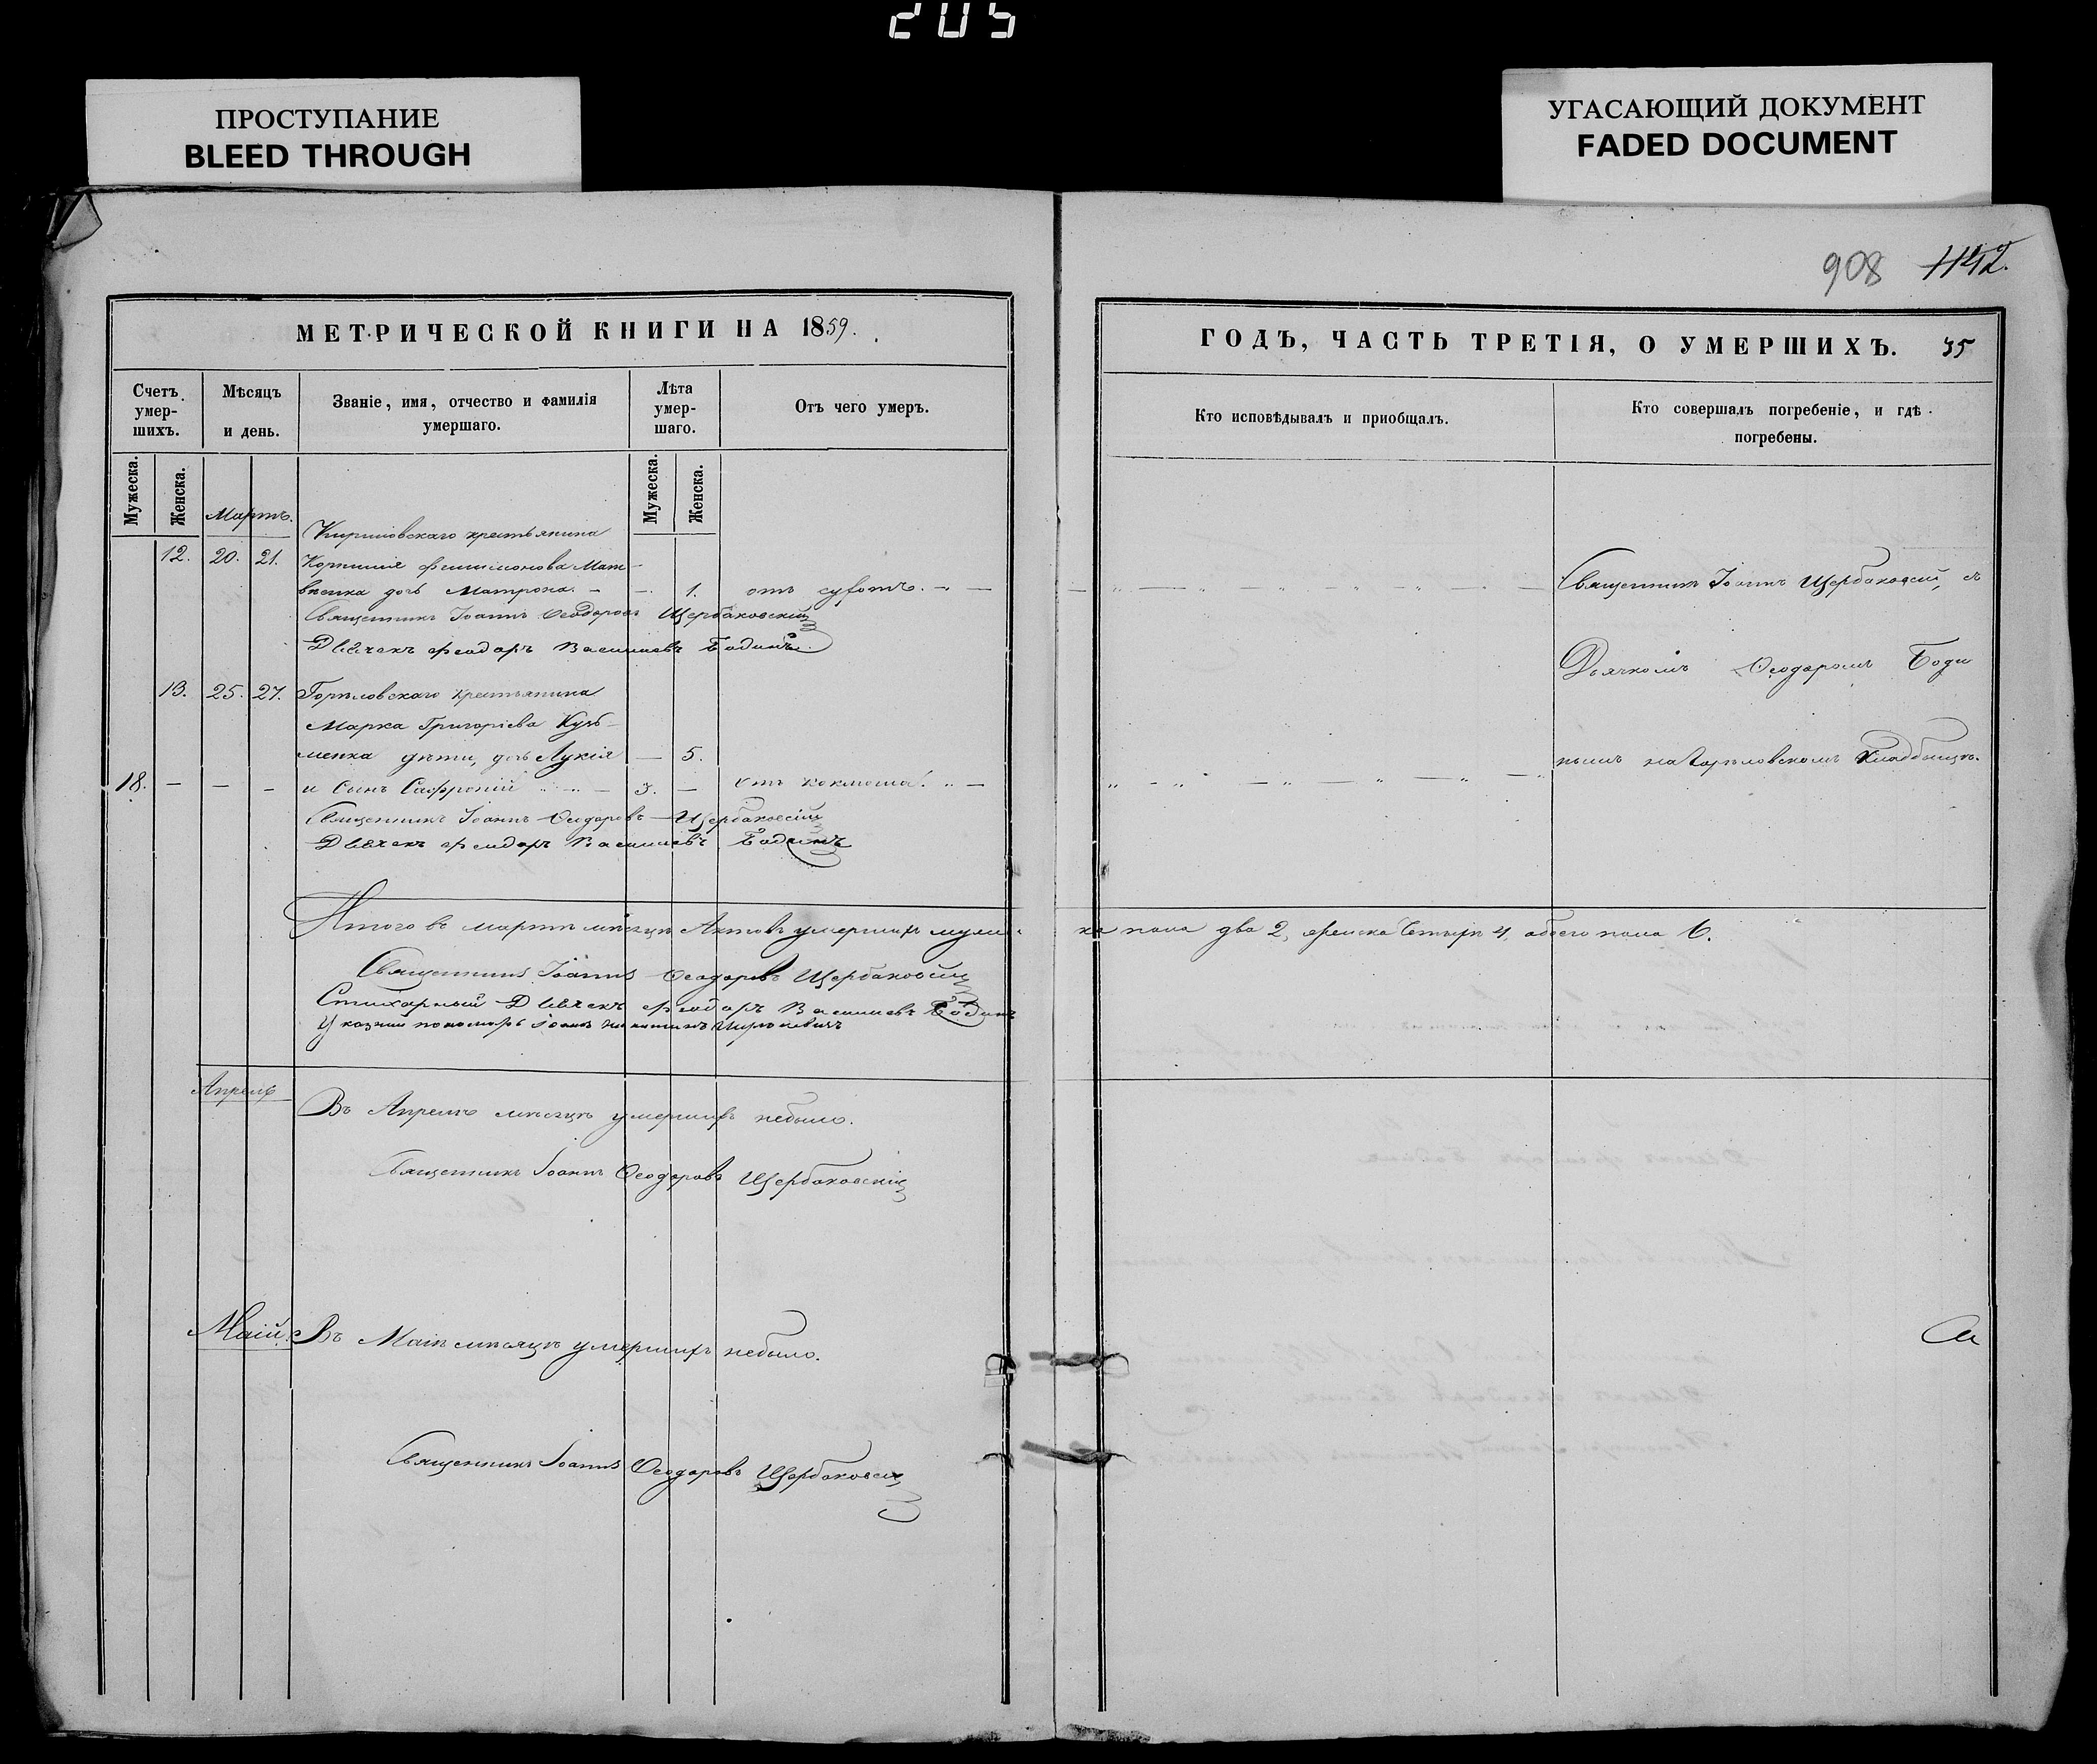 205
ПРОСТУПАНИЕ
BLEED THROUGH
УГАСАЮЩИЙ ДОКУМЕНТ
FADED DOCUMENT
908 1142.
МЕТРИЧЕСКОЙ КНИГИ НА 1859.
Счетъ умер-шихъ.
Мѣсяцъ и день.
Званіе, имя, отчество и фамилія умершаго.
Лѣта умер-шаго.
Отъ чего умеръ.
Мужеска.
Женска.
Мужеска.
Женска.
Мартъ.
крестьянина
12. 20. 21. Корнилія Филимонова Мат-
вѣенка дочь Матрона. — — 1. отъ сухотъ. — —
Священникъ Іоаннъ Ѳеодоровъ Щербаковскій
Дьячекъ Феодоръ Василіевъ Бодинъ
13. 25. 27. Горѣловскаго крестьянина
Марка Григоріева Кузь-
менка дѣти, дочь Лукія — 5.
18. — — — и Сынъ Сафроній — 3. — отъ коклюша. —
Священникъ Іоаннъ Ѳеодоровъ Щербаковскій
Дьячекъ Феодоръ Василіевъ Бодинъ
Итого въ мартѣ мѣсяцѣ Актовъ умершихъ муже-
Священникъ Іоаннъ Ѳеодоровъ Щербаковскій
Стихарный Дьячекъ Феодоръ Василіевъ Бодинъ
пономарь Іоаннъ
Апрель
Въ Апрелѣ мѣсяцѣ умершихъ небыло.
Священникъ Іоаннъ Ѳеодоровъ Щербаковскій
Маій. Въ Маіѣ мѣсяцѣ умершихъ небыло.
Священникъ Іоаннъ Ѳеодоровъ Щербаковскій
ГОДЪ, ЧАСТЬ ТРЕТІЯ, О УМЕРШИХЪ. 35
Кто исповѣдывалъ и пріобщалъ.
Кто совершалъ погребеніе, и гдѣ погребены.
Священникъ Іоаннъ Щербаковскій, съ
Дьячкомъ Ѳеодоромъ Боди
нымъ на Горѣловскомъ кладбищѣ.
ка пола два 2, женска четыре 4, обоего пола 6.